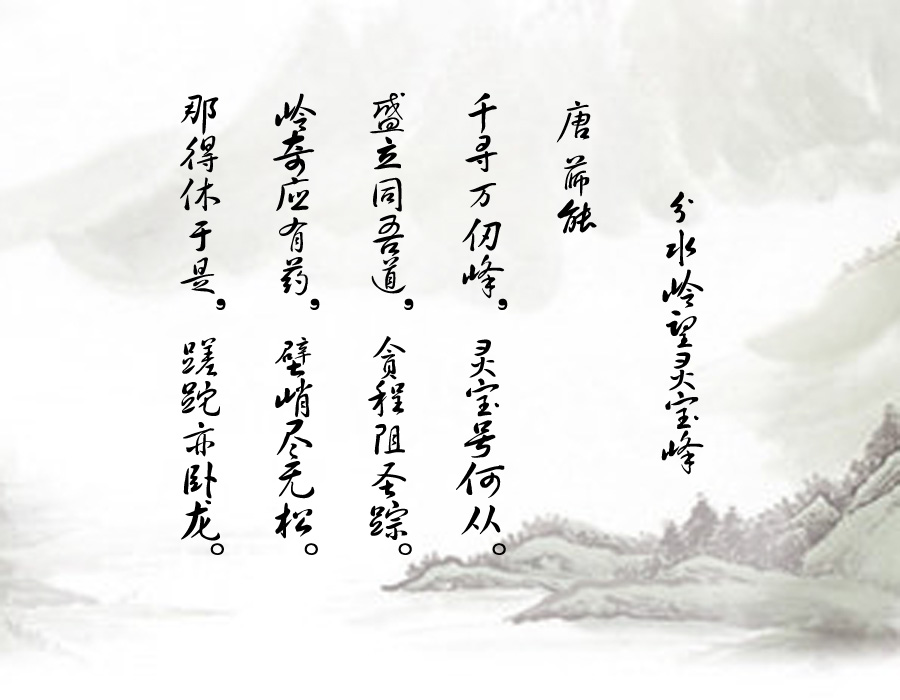 分水岭望灵宝峰
唐 薛能
千寻万仞峰，灵宝号何从。
盛立同吾道，贪程阻圣踪。
岭奇应有药，壁峭尽无松。
那得休于是，蹉跎亦卧龙。